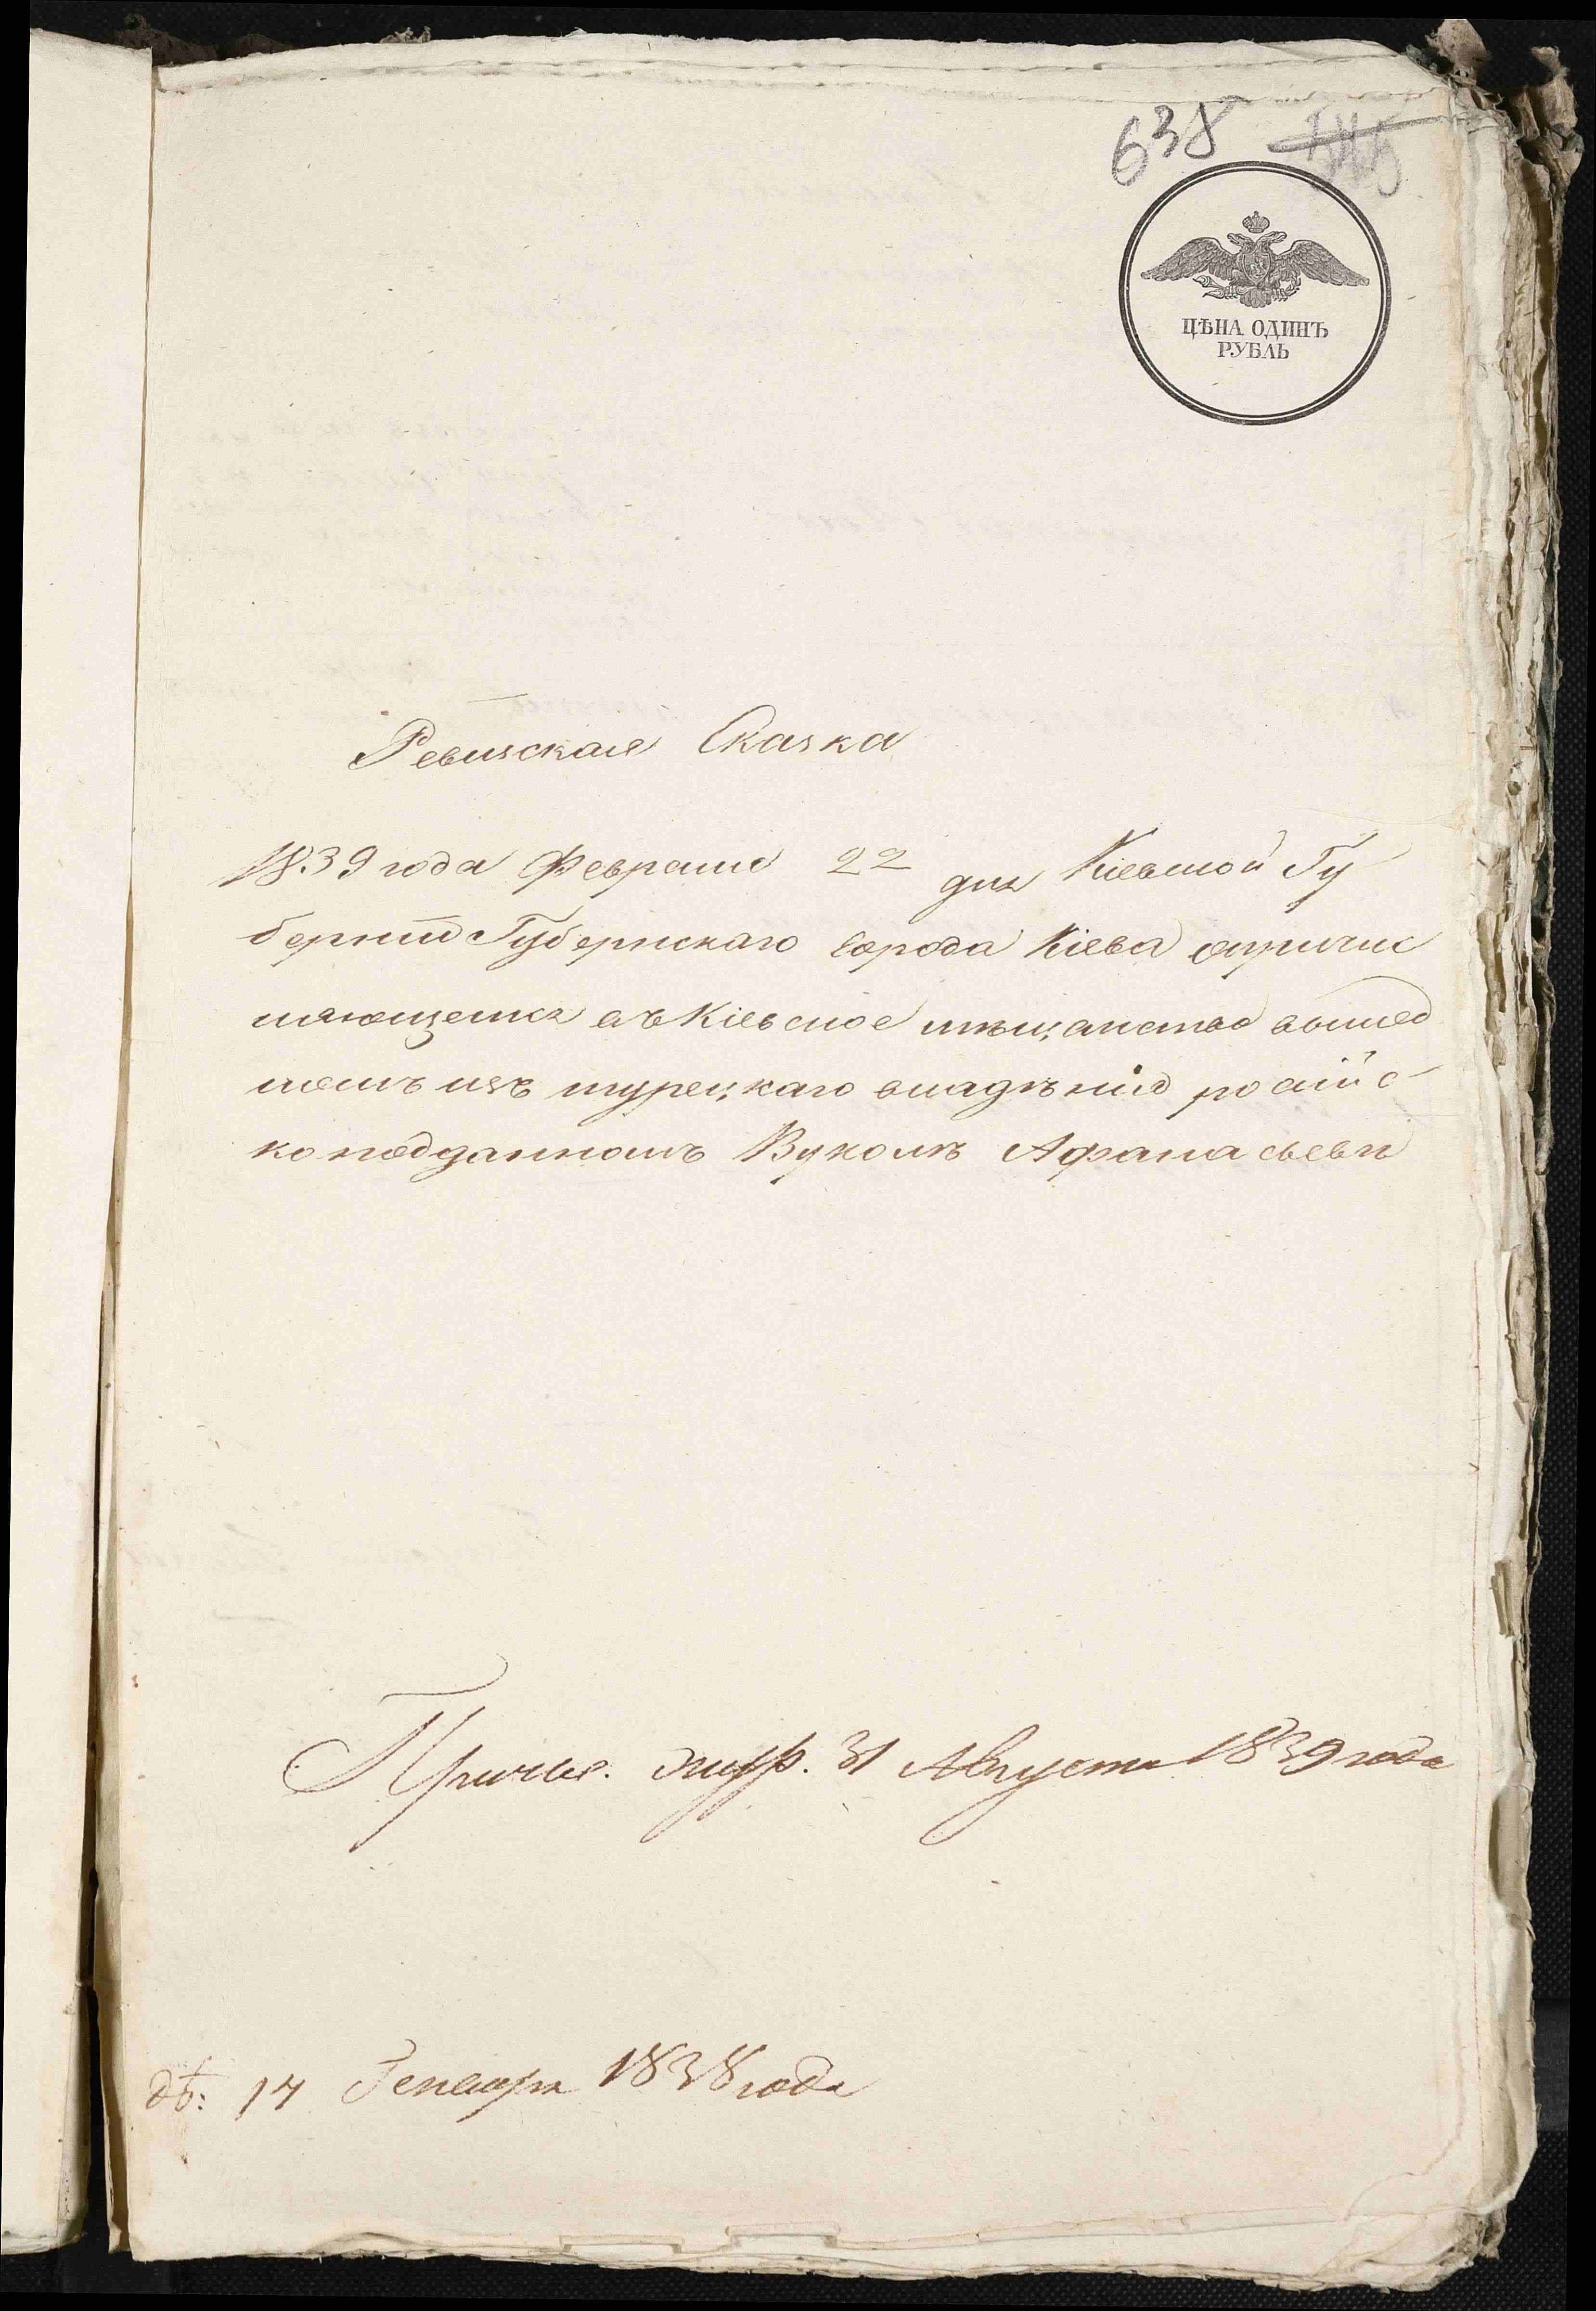 638
ЦѢНА ОДИНЪ
РУБЛЬ
Ревизская Сказка
1839 года Февраля 22 дня Кіевской Гу
берніи Губернскаго города Кіева опричис
ляющемся въ Кіевское мѣщанство вышед
шемъ изъ турецкаго владѣнія російс
ко подданномъ Вуколѣ Афанасьевѣ
Причис. 31 Августа 1839 года
17 Генваря 1838 года